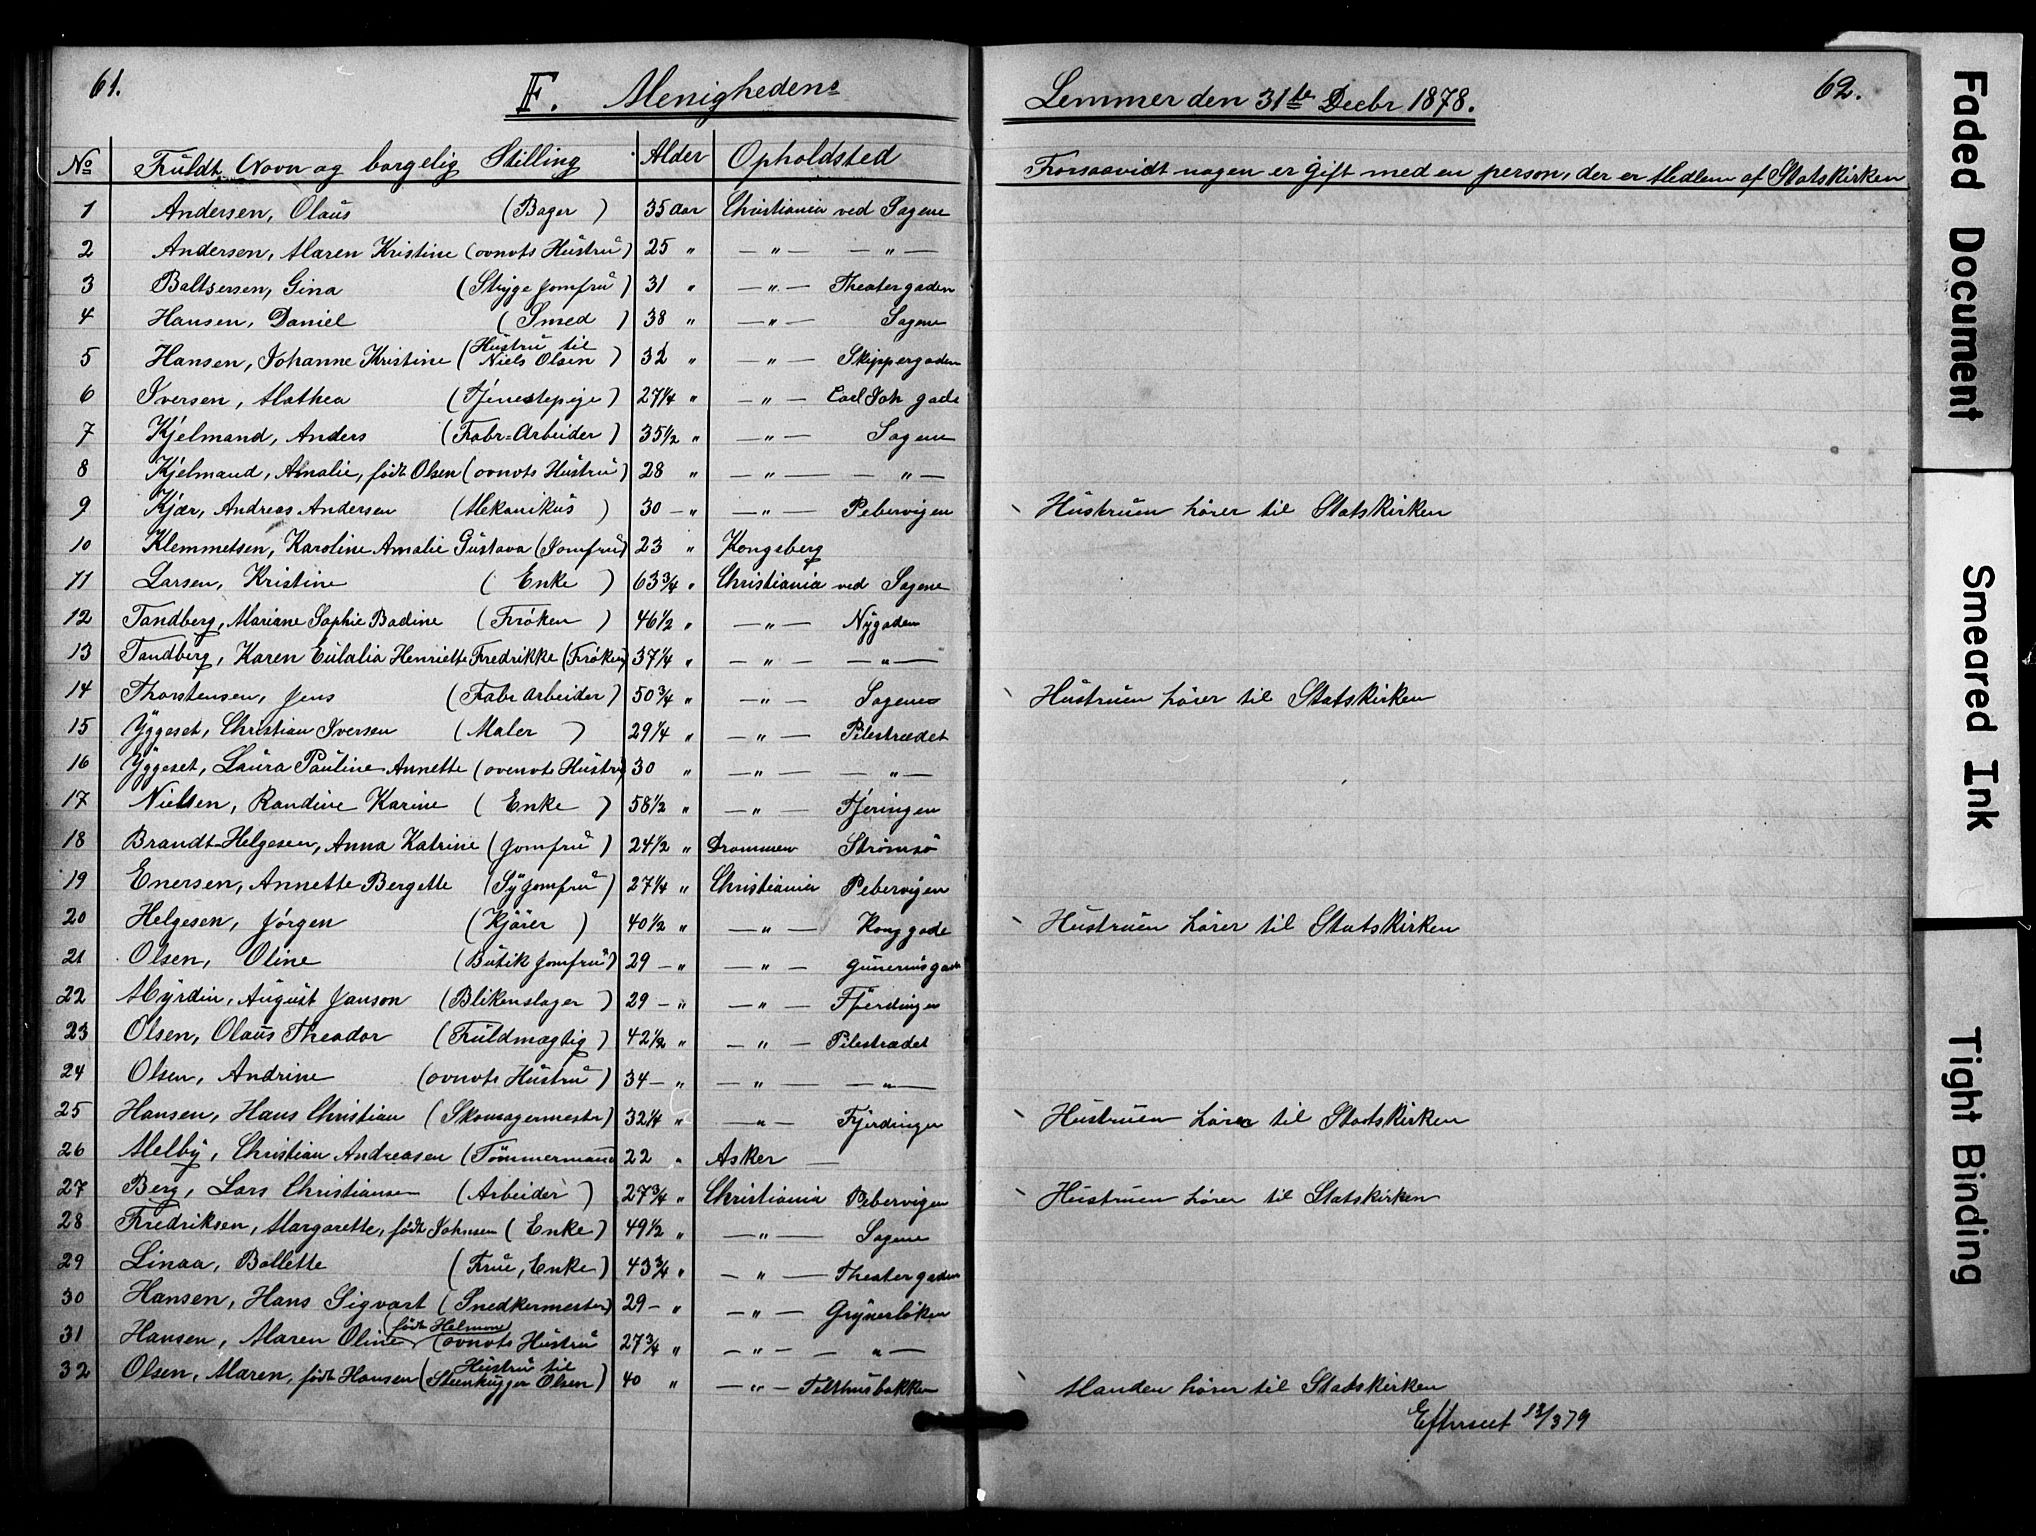 61.
F. Menighedens
Lemmer den 31te Decbr 1878.
62.
No Fuldt Navn og borgelig Stilling Alder Opholdsted Forsaavidt nogen er gift med en person, der er Medlem af Statskirken
1 Andersen, Olaus (Bager) 35 Aar Christiania ved Sagene
2 Andersen, Maren Kristine (ovnvts Hustru) 25 " — " — — " —
3 Baltsersen, Gina (Stryge jomfru) 31 " — " — Theatergaden
4 Hansen, Daniel (Smed) 38 " — " — Sagene
5 Hansen, Johanne Kristine (Hustru til Niels Olsen) 32 " — " — Skippergaden
6 Iversen, Mathea (Tjenestepige) 27 1/4 " — " — Carl Joh gade
7 Kjelmand, Anders (Fabr-Arbeider) 35 1/2 " — " — Sagene
8 Kjelmand, Amalie, født Olsen (ovnvts Hustru) 28 " — " — — " —
9 Kjær, Andreas Andersen (Mekanikus) 30 — " — " — Pebervigen Hustruen hører til Statskirken
10 Klemmetsen, Karoline Amalie Gustava (Jomfru) 23 " Kongsberg
11 Larsen, Kristine (Enke) 63 3/4 " Christiania ved Sagene
12 Tandberg, Mariane Sophie Badine (Frøken) 46 1/2 " — " — Nygaden
13 Tandberg, Karen Eulalia Henriette Fredrikke (Frøken) 37 1/4 " — " — — " —
14 Thorstensen, Jens (Fabr Arbeider) 50 3/4 " — " — Sagene Hustruen hører til Statskirken
15 Yggeset, Christian Iversen (Maler) 29 1/4 " — " — Pilestrædet
16 Yggeset, Laura Pauline Annette (ovenvts Hustru) 30 " — " — — " —
17 Nielsen, Randine Karine (Enke) 58 1/2 " — " — Fjeringen
18 Brandt-Helgesen, Anna Katrine (jomfru) 24 1/2 " Drammen Strømsø
19 Enersen, Annette Bergette (Syjomfru) 27 1/4 " Christiania Pebervigen
20 Helgesen, Jørgen (Kjører) 40 1/2 " — " — Konggade Hustruen hører til Statskirken
21 Olsen, Oline (Butik Jomfru) 29 — " — " — Gunerusgade
22 Myrdin, August Janson (Blikenslager) 29 — " — " — Fjerdingen
23 Olsen, Olaus Theodor (Fuldmægtig) 42 1/2 " — " — Pilestrædet
24 Olsen, Andrine (ovnvts Hustru) 34 — " — " — — " —
25 Hansen, Hans Christian (Skomagermester) 32 1/4 " — " — Fjerdingen Hustruen hører til Statskirken
26 Melby, Christian Andreasen (Tømmermand 22 " Asker —
27 Berg, Lars Christiansen (Arbeider) 27 3/4 " Christiania Pebervigen Hustruen hører til Statskirken
28 Fredriksen, Margarette, født Johnsen (Enke) 49 1/2 " — " — Sagene
29 Linaa, Bollette (Frue, Enke) 43 3/4 " — " — Theatergaden
30 Hansen, Hans Sigvart (Snedkermester) 29 — " — " — Grynerløken
31 Hansen, Maren Oline (født Helmon) (ovnvts Hustru 27 3/4 " — " — — " —
32 Olsen, Maren, født Hansen (Hustru til Steenhugger Olsen) 40 " — " — Telthusbakken Manden hører til Statskirken
Efterseet 13/3 79
Faded Document
Smeared Ink
Tight Binding